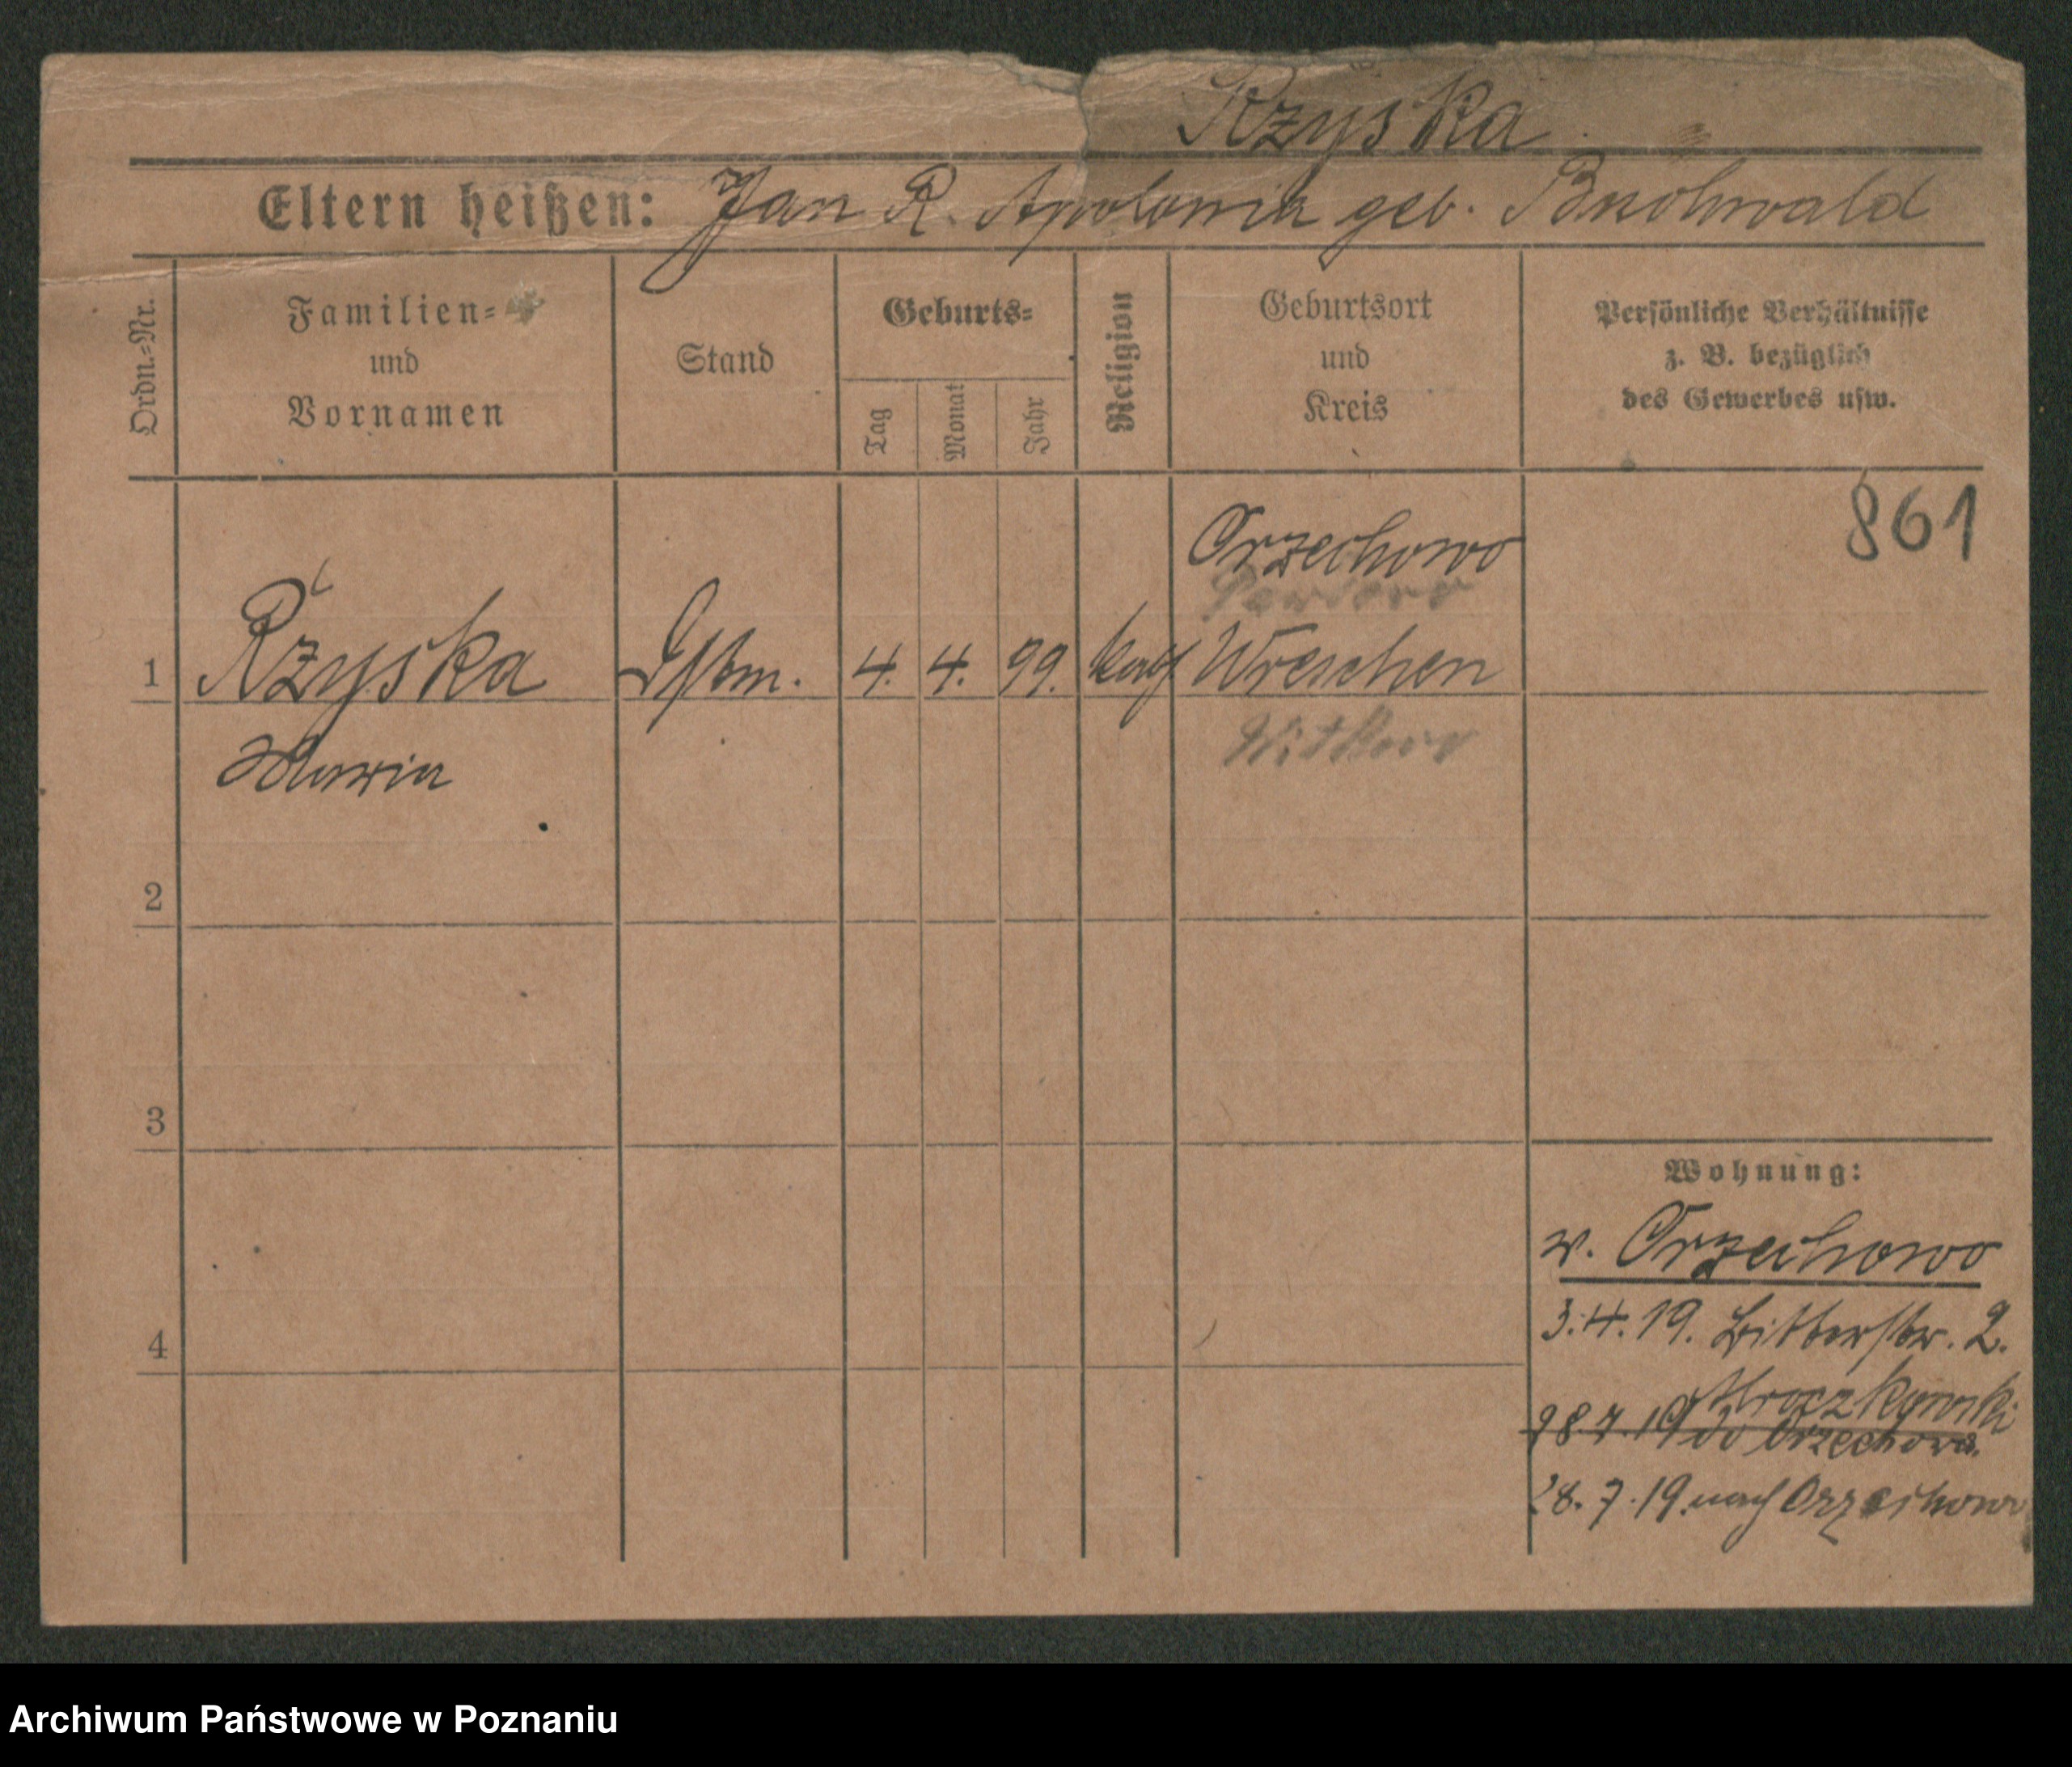 Rzyska
Eltern heißen: Jan R. Apolonia geb. Buchwald
Ordn.=Nr.
Familien=
und
Vornamen
Stand
Geburts=
Tag
Monat
Jahr
Religion
Geburtsort
und
Kreis
Persönliche Verhältnisse
z. B. bezüglich
des Gewerbes usw.
861
Orzechowo
1 Rzyska 4. 4. 99. kath Wreschen
Witkowo
Maria
2
3
4
Wohnung:
v. Orzechowo
3.4.19. Ritterstr. 2.
Mroczkowski
28.7.19 do Orzechowa.
28.7.19. nach Orzechowo
Archiwum Państwowe w Poznaniu